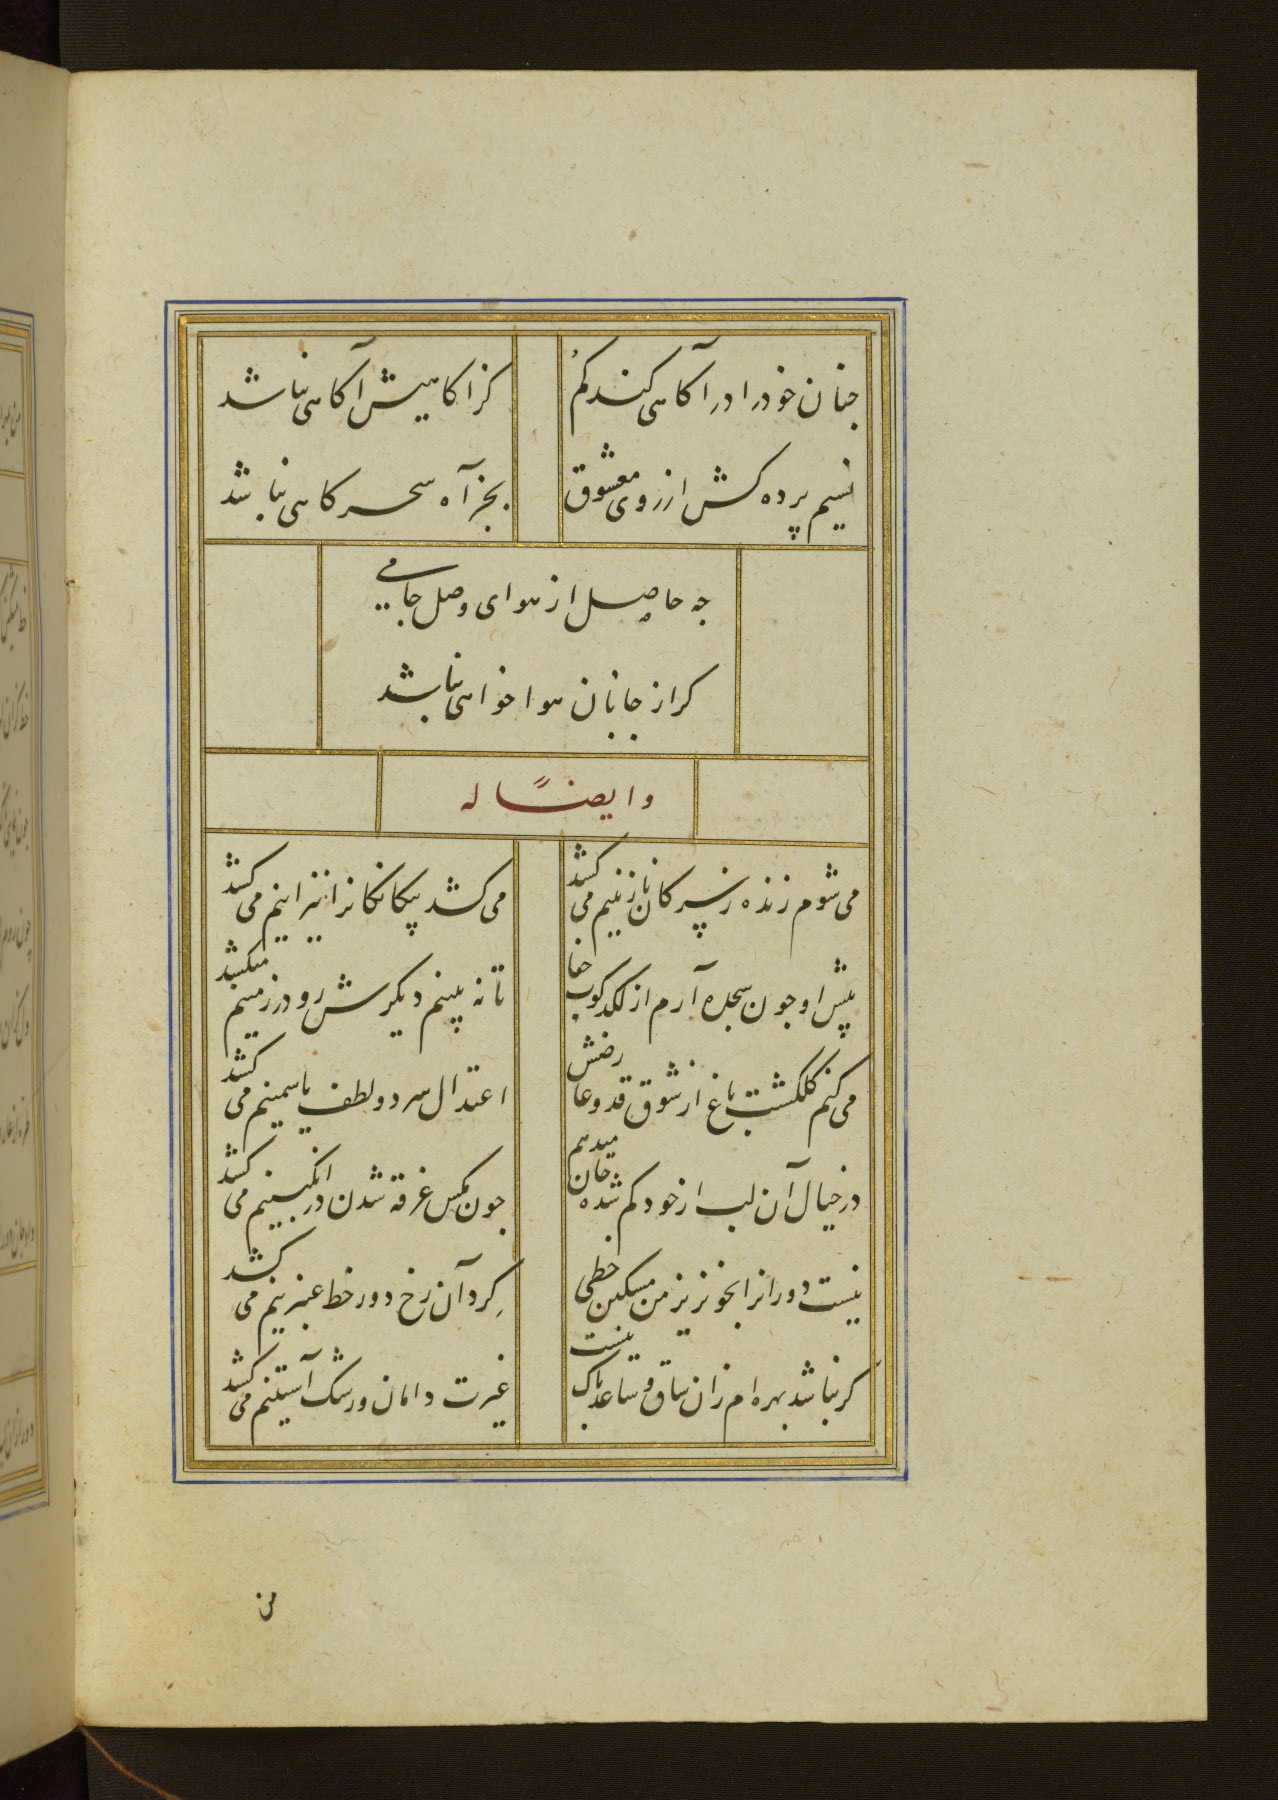 جنان خود را در آکاهی کند کم
کز اکاهیش آکاهی نباشد
نسیم پرده کش از روی معشوق
بجز آه سحرکاهی نباشد
جه حاصل از هوای وصل جامی
کر از جانان هوا خواهی نباشد
وایضاً له
می شوم زنده ز پیر کان نازنینم می کشد
می کشد پیکانکانرا نیز اینم می کشد
پیش او جون سجده آرم از لکدکوب جفا
تا نه بینم دیکرش رو در زمینم میکشد
می کنم کلکشت باغ از شوق قد و عارضش
اعتدال سرو و لطف یاسمینم می کشد
در خیال آن لب از خود کم شده جان میدهم
جون مکس غرقه شدن در انکبینم می کشد
نیست دورانرا بخونریز من مسکین خطی
کرد آن رخ دور خط عنبرینم می کشد
کر نباشد بهره ام زان ساق و ساعد باک نیست
غیرت دامان و رشک آستینم می کشد
من